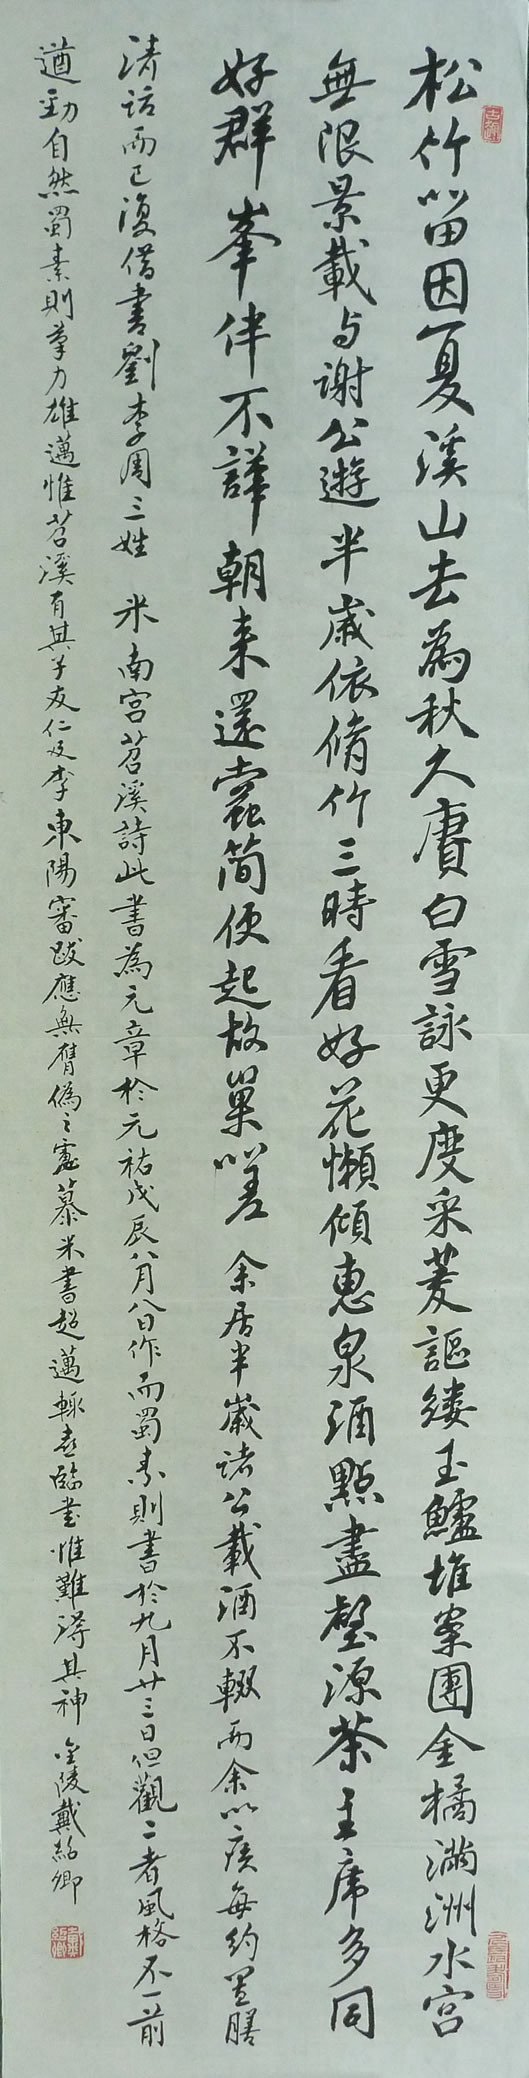 松竹留因夏溪山去為秋久賡白雪詠更度采菱謳縷玉鱸堆案團金橘滿洲水宮
無限景載与謝公遊半歲依脩竹三時看好花懶傾惠泉酒點盡壑源茶主席多同
好群峯伴不譁朝来還蠹簡便起故巢嗟 余居半歲諸公載酒不輟而余以疾每約置膳
清話而已復借書劉李周三姓 米南宮苕溪詩此書為元章於元祐戊辰八月八日作而蜀素則書於九月廿三日但觀二者風格不一前
遒勁自然蜀素則筆力雄邁惟苕溪有其子友仁及李東陽審跋應無贋偽之慮慕米書超邁輒喜臨書惟難得其神 金陵戴紹卿